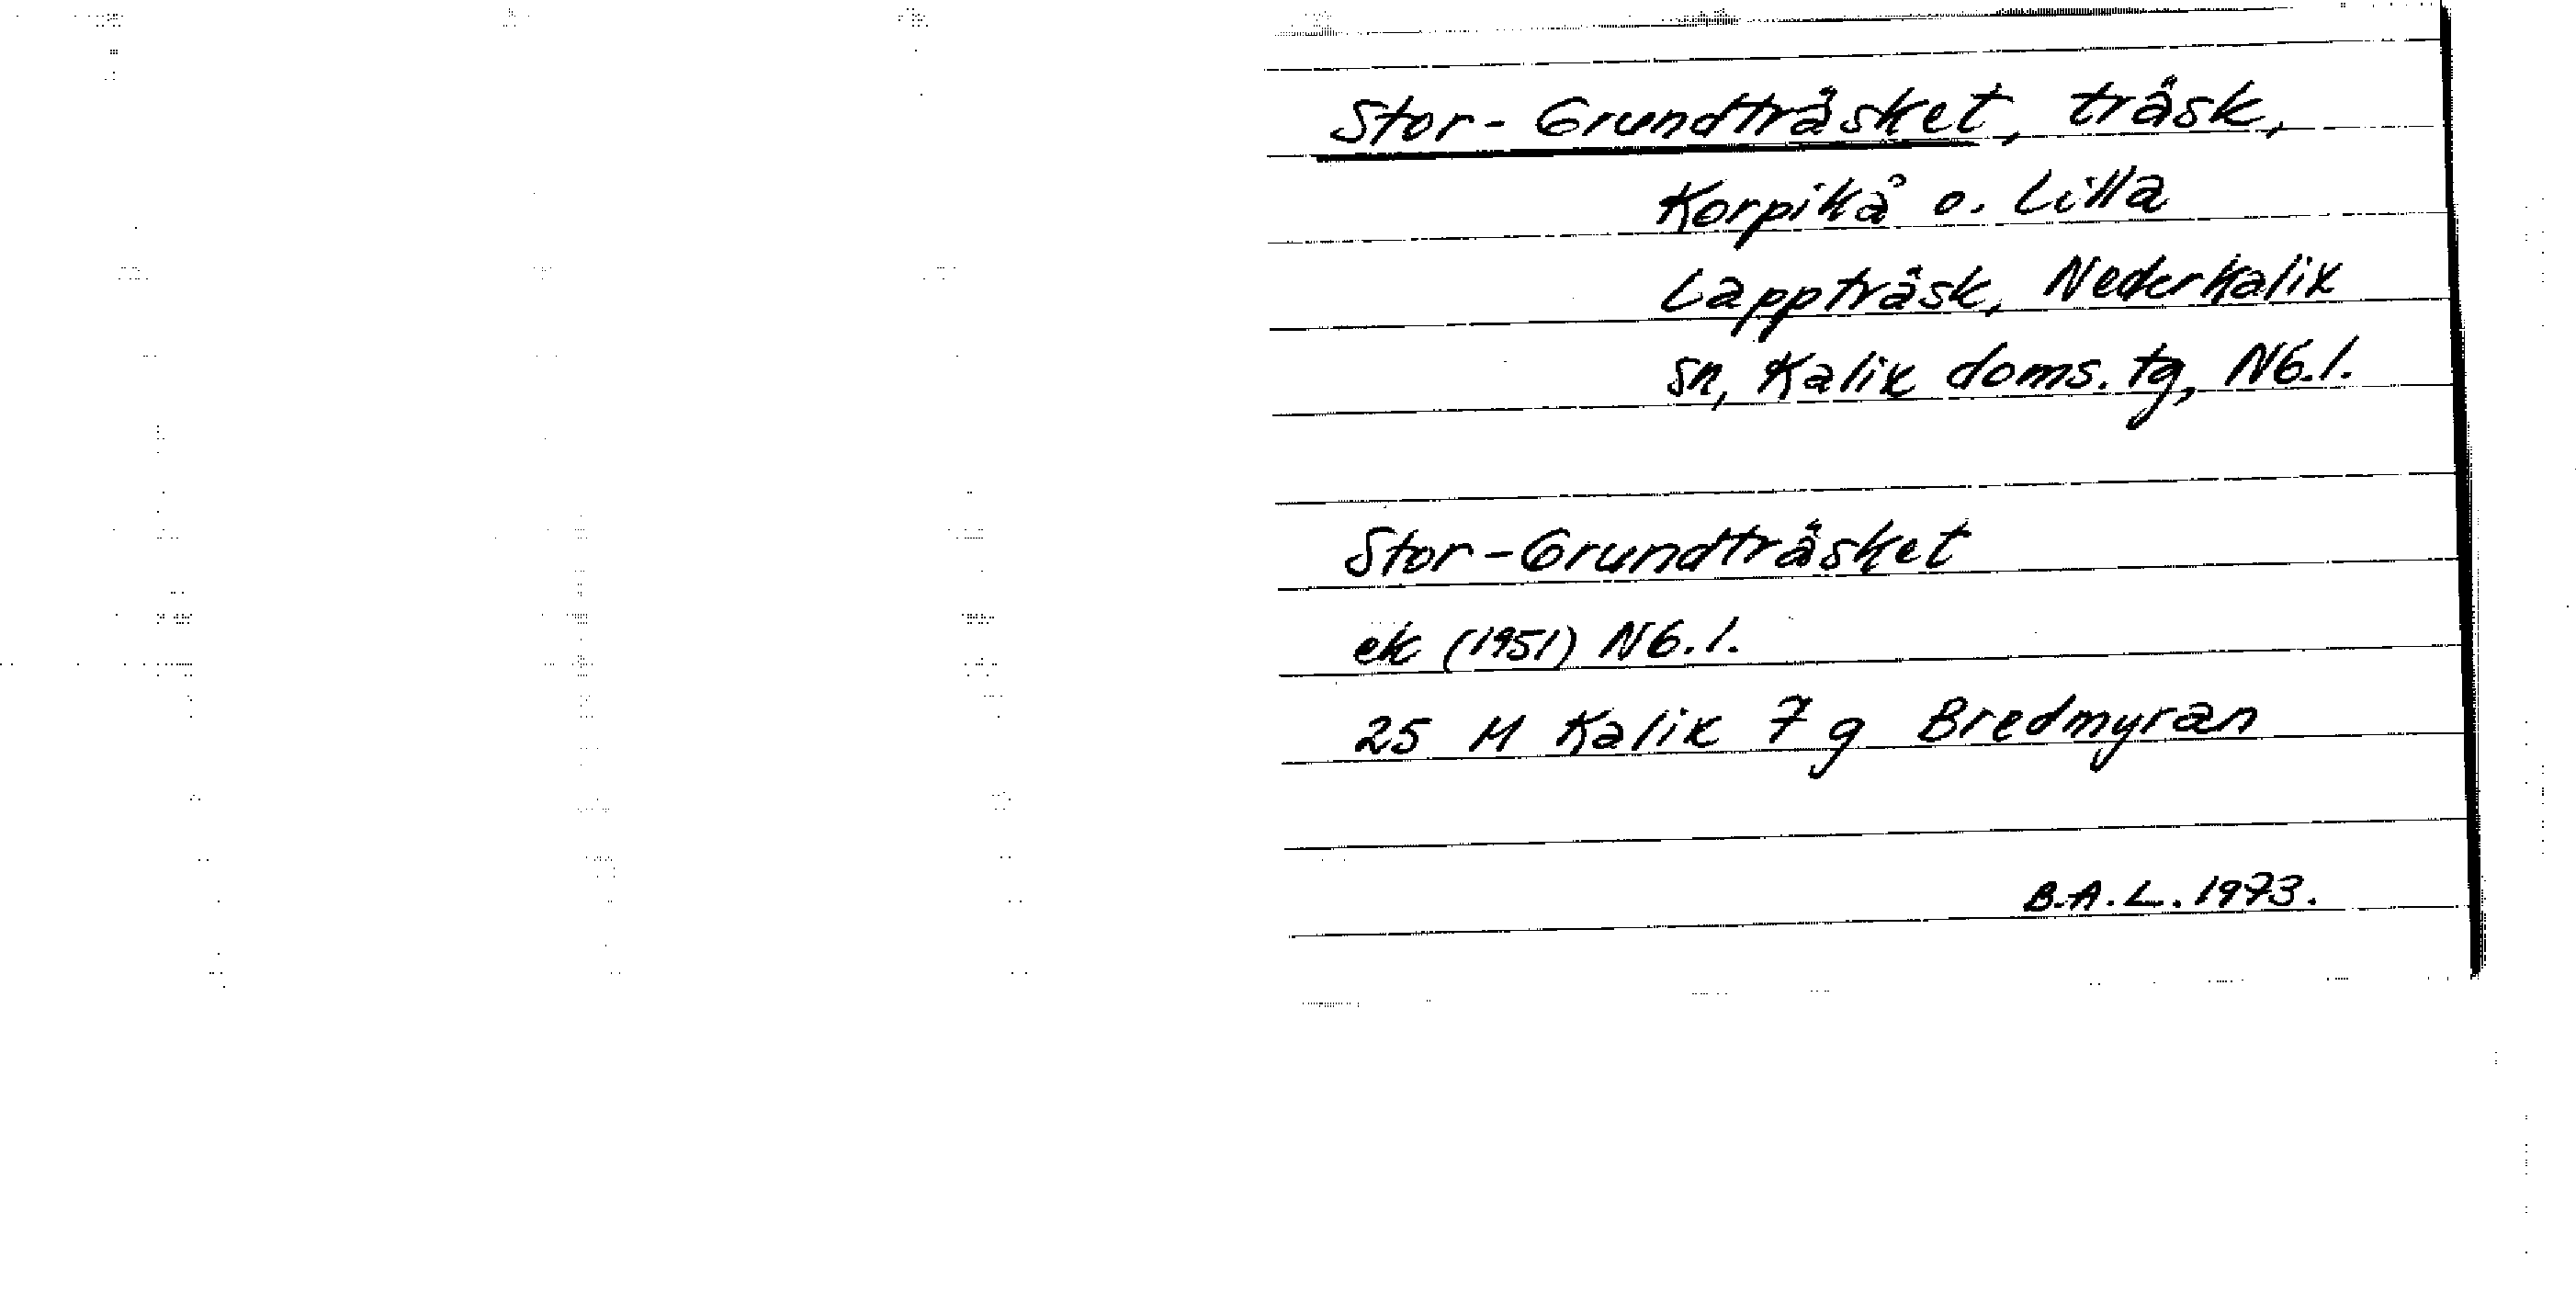 Stor-Grundträsket, träsk,
Korpikå o. Lilla
Lappträsk, Nederkalix
sn, Kalix doms. tg, Nb.l.
Stor-Grundträsket
ek (1951) Nb.l.
25 M Kalix 7 g Bredmyran
B.A.L. 1973.